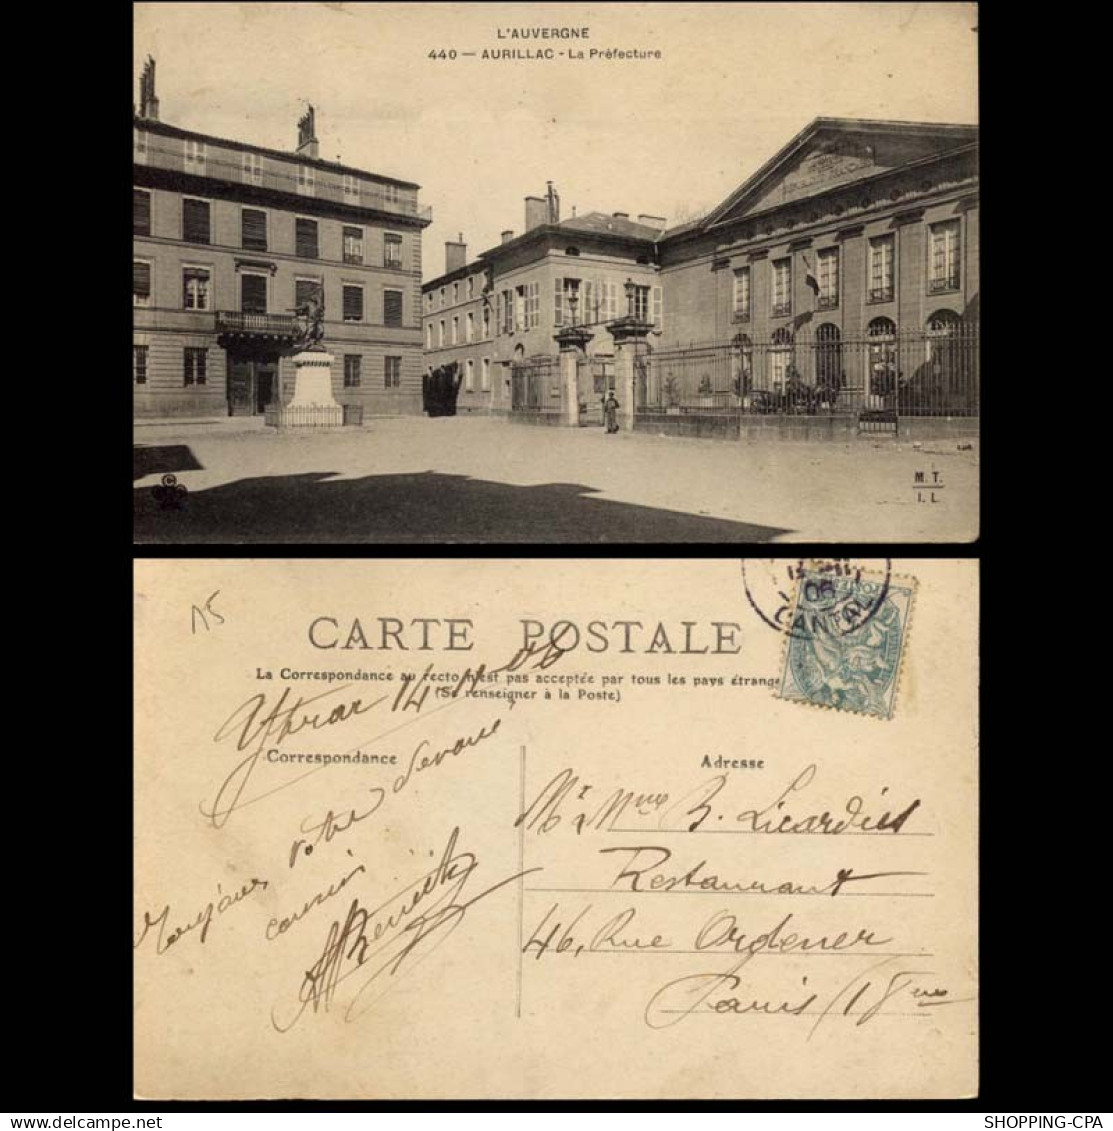 L'AUVERGNE
440 — AURILLAC - La Préfecture
M. T.
I. L.
15
CARTE POSTALE
La Correspondance au recto n'est pas acceptée par tous les pays étrange
(Se renseigner à la Poste)
Ytrac 14 11 06
Correspondance
Toujours votre dévoué
cousin
Adresse
Mr & Mme B. Licardies
Restaurant
46, Rue Ordener
Paris (18me
06
CANTAL
SHOPPING-CPA